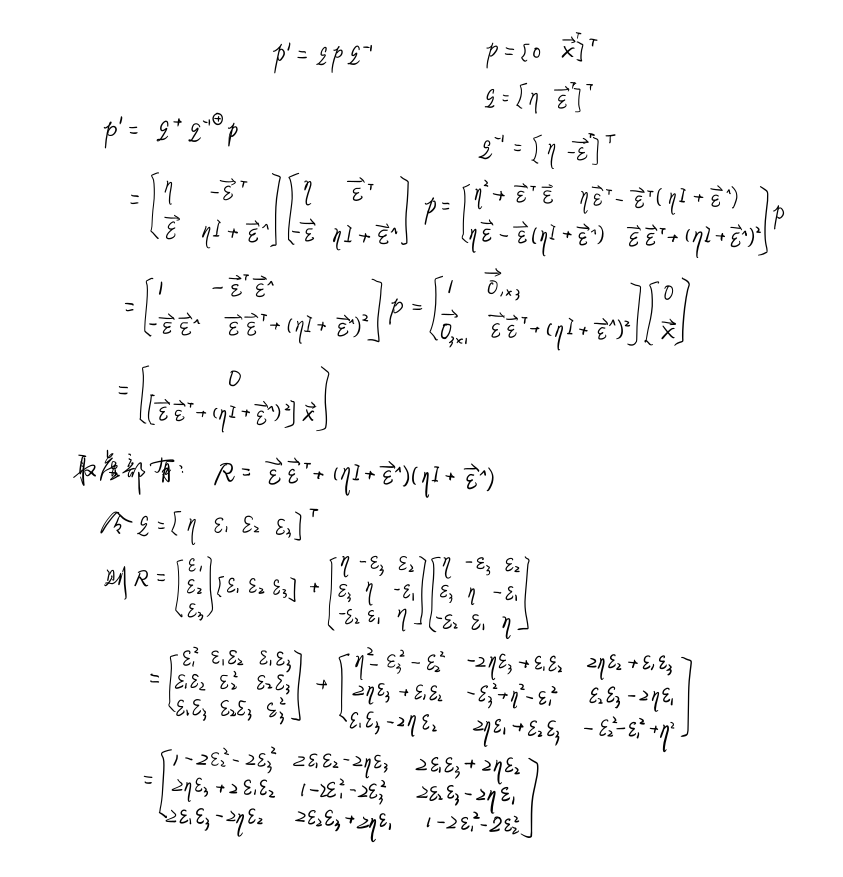 p' = q p q⁻¹    p = [0 x⃗ᵀ]ᵀ
q = [η ε⃗ᵀ]ᵀ
p' = q⁺ q⁻¹^⊕ p    q⁻¹ = [η -ε⃗ᵀ]ᵀ
= [η -ε⃗ᵀ; ε⃗ ηI + ε⃗^] [η ε⃗ᵀ; -ε⃗ ηI + ε⃗^] p = [η² + ε⃗ᵀε⃗ ηε⃗ᵀ - ε⃗ᵀ(ηI + ε⃗^); ηε⃗ - ε⃗(ηI + ε⃗^) ε⃗ε⃗ᵀ + (ηI + ε⃗^)²] p
= [1 -ε⃗ᵀε⃗^; -ε⃗ε⃗^ ε⃗ε⃗ᵀ + (ηI + ε⃗^)²] p = [1 0⃗₁ₓ₃; 0⃗₃ₓ₁ ε⃗ε⃗ᵀ + (ηI + ε⃗^)²] [0; x⃗]
= [0; [ε⃗ε⃗ᵀ + (ηI + ε⃗^)²] x⃗]
取虚部有: R = ε⃗ε⃗ᵀ + (ηI + ε⃗^)(ηI + ε⃗^)
令 q = [η ε₁ ε₂ ε₃]ᵀ
则 R = [ε₁; ε₂; ε₃] [ε₁ ε₂ ε₃] + [η -ε₃ ε₂; ε₃ η -ε₁; -ε₂ ε₁ η] [η -ε₃ ε₂; ε₃ η -ε₁; -ε₂ ε₁ η]
= [ε₁² ε₁ε₂ ε₁ε₃; ε₁ε₂ ε₂² ε₂ε₃; ε₁ε₃ ε₂ε₃ ε₃²] + [η² - ε₃² - ε₂² -2ηε₃ + ε₁ε₂ 2ηε₂ + ε₁ε₃; 2ηε₃ + ε₁ε₂ -ε₃² + η² - ε₁² ε₂ε₃ - 2ηε₁; ε₁ε₃ - 2ηε₂ 2ηε₁ + ε₂ε₃ -ε₂² - ε₁² + η²]
= [1 - 2ε₂² - 2ε₃² 2ε₁ε₂ - 2ηε₃ 2ε₁ε₃ + 2ηε₂; 2ηε₃ + 2ε₁ε₂ 1 - 2ε₁² - 2ε₃² 2ε₂ε₃ - 2ηε₁; 2ε₁ε₃ - 2ηε₂ 2ε₂ε₃ + 2ηε₁ 1 - 2ε₁² - 2ε₂²]